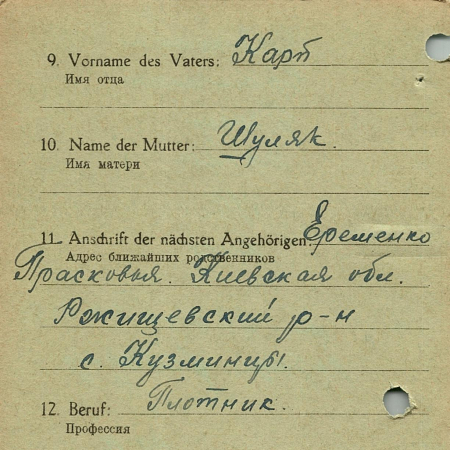 9. Vorname des Vaters: Карп
Имя отца
10. Name der Mutter: Шуляк.
Имя матери
11. Anschrift der nächsten Angehörigen: Еременко
Адрес ближайших родственников
Прасковья. Киевская обл.
Ржищевский р-н
с. Кузминцы.
12. Beruf: Плотник.
Профессия